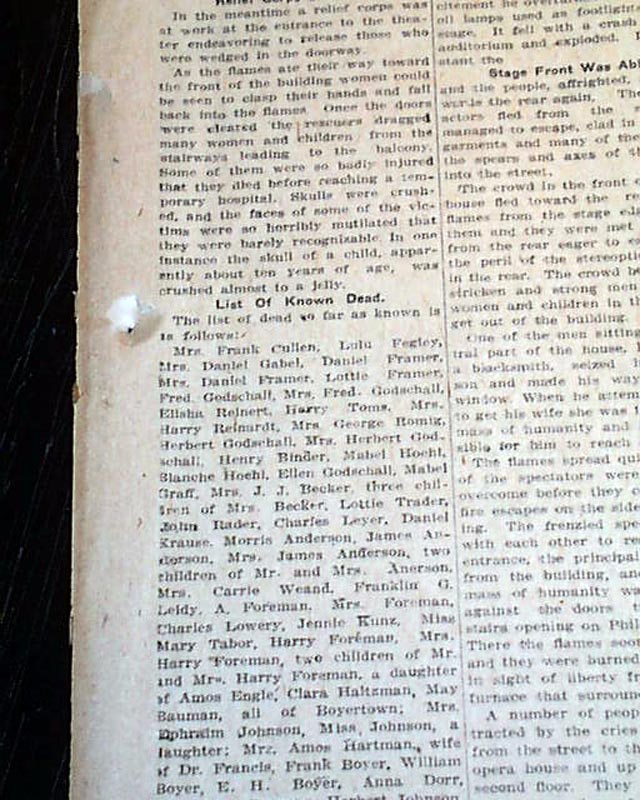 In the meantime a relief corps was
at work at the entrance to the thea-
ter endeavoring to release those who
were wedged in the doorway.
As the flames ate their way toward
the front of the building women could
be seen to clasp their hands and fall
back into the flames. Once the doors
were cleared the rescuers dragged
many women and children from the
stairways leading to the balcony.
Some of them were so badly injured
that they died before reaching a tem-
porary hospital. Skulls were crush-
ed, and the faces of some of the vic-
tims were so horribly mutilated that
they were barely recognizable. In one
instance the skull of a child, appar-
ently about ten years of age, was
crushed almost to a jelly.
List Of Known Dead.
The list of dead so far as known is
is follows:
Mrs. Frank Cullen, Lulu Fegley,
Mrs. Daniel Gabel, Daniel Framer,
Mrs. Daniel Framer, Lottie Framer,
Fred. Godschall, Mrs. Fred. Godschall,
Elisha Reinert, Harry Toms, Mrs.
Harry Reinardt, Mrs. George Romig,
Herbert Godschall, Mrs. Herbert God-
schall, Henry Binder, Mabel Hoehl,
Blanche Hoehl, Ellen Godschall, Mabel
Graff, Mrs. J. J. Becker, three chil-
dren of Mrs. Becker, Lottie Trader,
John Rader, Charles Leyer, Daniel
Krause, Morris Anderson, James An-
derson, Mrs. James Andferson, two
children of Mr. and Mrs. Anerson,
Mrs. Carrie Weand, Franklin G.
Leidy, A. Foreman, Mrs. Foreman,
Charles Lowery, Jennie Kunz, Miss
Mary Tabor, Harry Foreman, Mrs.
Harry Foreman, two children of Mr.
and Mrs. Harry Foreman, a daughter
of Amos Engle, Clara Haltzman, May
Bauman, all of Boyertown; Mrs.
Ephraim Johnson, Miss Johnson, a
daughter; Mrs. Amos Hartman, wife
of Dr. Francis, Frank Boyer, William
Boyer, E. H. Boyer, Anna Dorr,
Herbert Johnson
citement he overturned
oil lamps used as footlight
stage. It fell with a crash
auditorium and exploded.
stant the
Stage Front Was Abl
and the people, affrighted,
wards the rear again. The
actors fled from the
managed to escape, clad in
garments and many of the
the spears and axes of th
into the street.
The crowd in the front o
house fled toward the re
flames from the stage ed
them and they were met
from the rear eager to e
the peril of the stereoptic
in the rear. The crowd b
stricken and strong men
women and children in t
get out of the building.
One of the men sitting
tral part of the house,
a blacksmith, seized
son and made his way
window. When he attem
to get his wife she was
mass of humanity and
sible for him to reach
The flames spread qui
of the spectators were
overcome before they c
fire escapes on the side
ing. The frenzied spe
with each other to re
entrance, the principal
from the building, an
mass of humanity wa
against the doors
stairs opening on Phil
There the flames soo
and they were burned
in sight of liberty fr
furnace that surroun
A number of peop
tracted by the cries
from the street to th
opera house and up
second floor. They